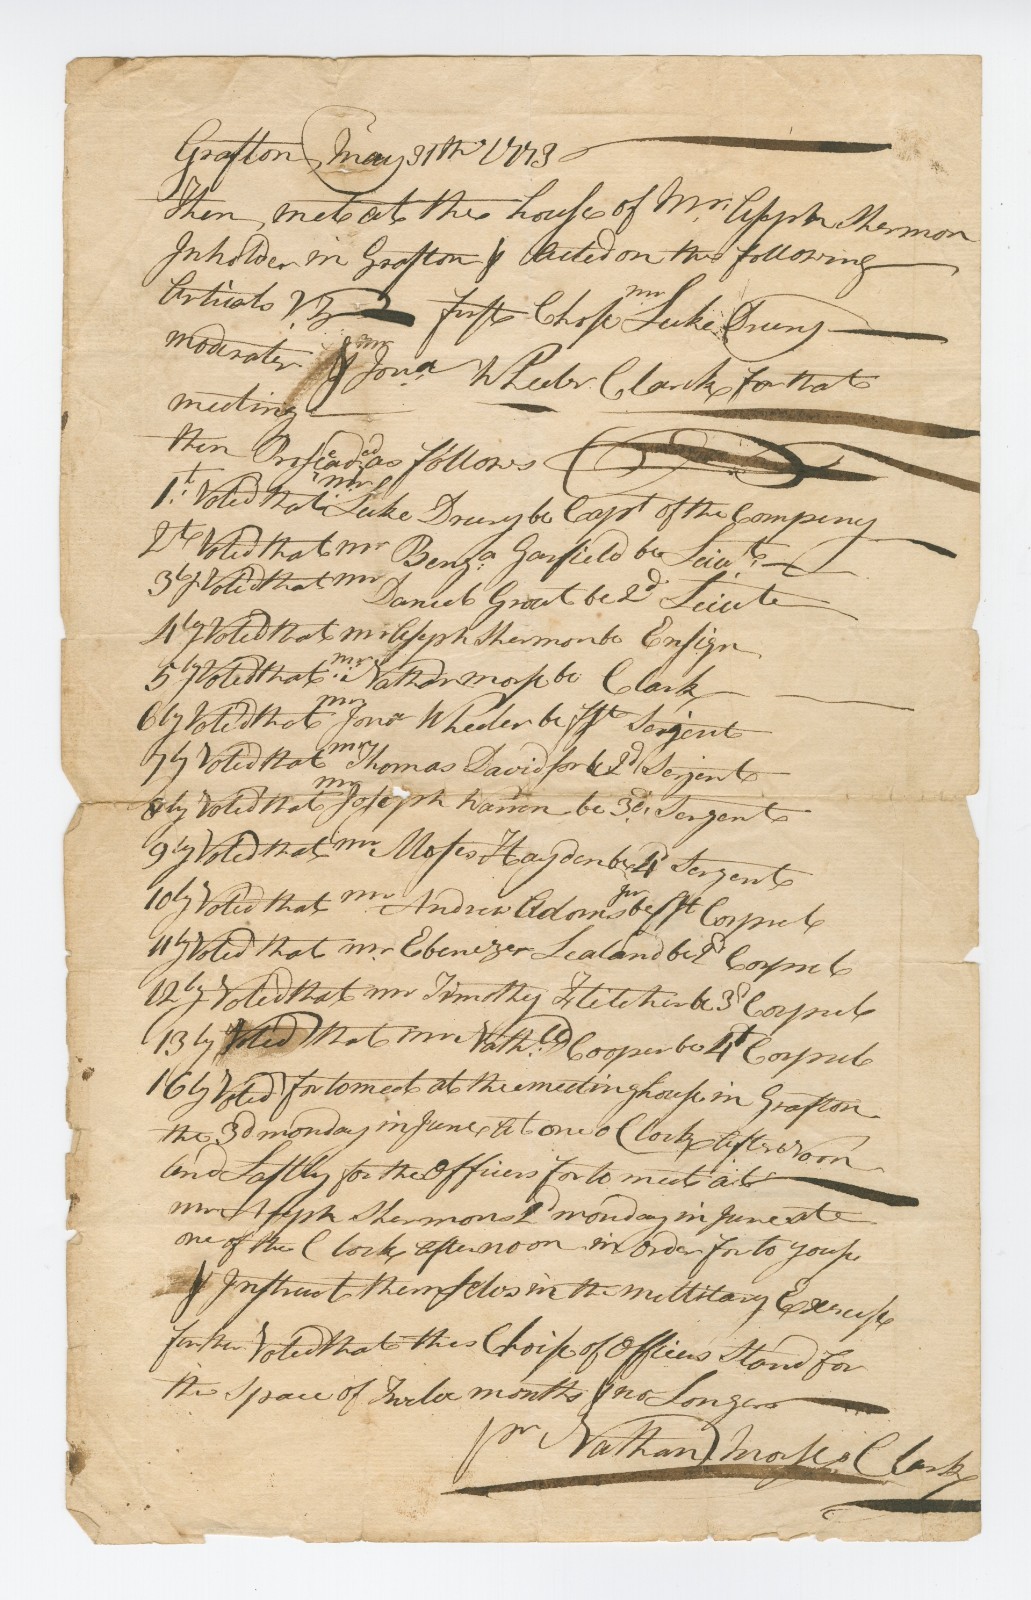 Grafton May 31th 1773
Then met at the house of Mr. Aseph Shermon
Inholder in Grafton & acted on the following
Articals Viz first Chose mr Luke Drury
moderater & mr Jona Wheeler Clark for that
meeting
then Proseaded as follows
1.t Voted that mr Luke Drury be Capt of the Compeny
2t Voted that mr Benja Garfield be Leiut
3ly Voted that mr Daniel Grout be 2d Leiut
4ly Voted that mr Aseph Shermon be Ensign
5ly Voted that mr Nathan morse be Clark
6ly Voted that mr Jona Wheeler be fst Serjent
7ly Voted that mr Thomas Davidson be 2d Serjent
8ly Voted that mr Joseph warren be 3d Sergent
9ly Voted that mr Moses Hayden be 4t Sergent
10ly Voted that mr Andrew Adams jur be fst Corprel
11ly Voted that mr Ebenezer Lealand be 2d Corprel
12ly Voted that mr Timothy Fletcher be 3d Corprel
13ly Voted that mr Nathll Cooper be 4t Corprel
16ly Voted for to meet at the meeting house in Grafton
the 3d monday in June at one o Clock afternoon
and Lastly for the Officers for to meet at
mr Aseph Shermons 2d monday in June at
one of the Clock afternoon in order for to youse
& Instruct themselves in the millitary Exercise
further Voted that this Choise of Officers Stand for
the space of Twelve months & no Longer
pr Nathan Morse Clark